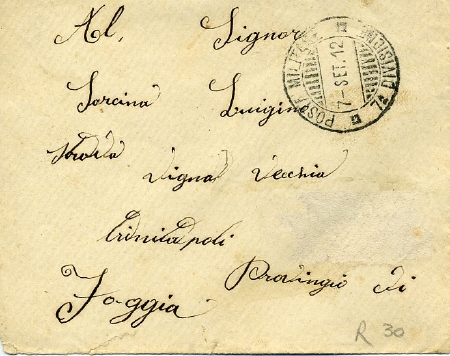 Al, Signor
Sarcina Luigino
Strada Vigna Vecchia
Trinitapoli
Provingio di
Foggia
POSTA MILITARE
7-SET.12
7ª DIVISIONE
R 30